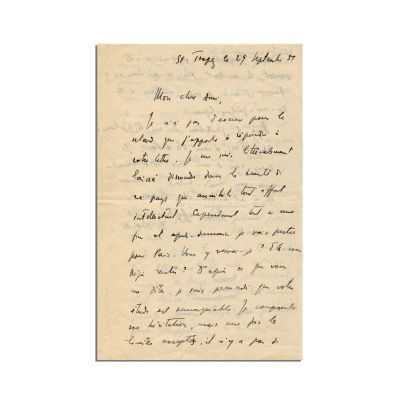 St. Tropez le 29 Septembre 51
Mon cher Ami,
Je n'ai pas d'excuses pour le
retard que j'apporte à répondre à
votre lettre. Je me suis littéralement
laissé dans la beauté de
ce pays qui tout effort
intellectuel. Cependant tout a une
fin et après-demain je vais partir
pour Paris. Vous y verrai-je ? Etes-vous
déjà rentré ? D'après ce que vous
me dites je suis persuadé que votre
étude est remarquable. Je comprends
vos hésitations, mais une fois les
limites acceptées, il n'y a pas de